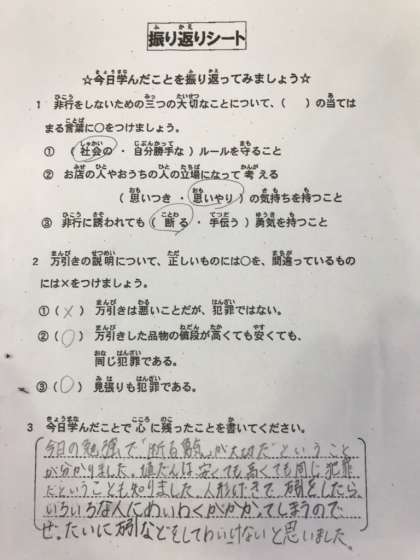 振り返りシート
☆今日学んだことを振り返ってみましょう☆
1 非行をしないための三つの大切なことについて、( )の当ては
まる言葉に○をつけましょう。
① ( 社会の ・ 自分勝手な ) ルールを守ること
② お店の人やおうちの人の立場になって考える
( 思いつき ・ 思いやり ) の気持ちを持つこと
③ 非行に誘われても( 断る ・ 手伝う ) 勇気を持つこと
2 万引きの説明について、正しいものには○を、間違っているもの
には×をつけましょう。
①( × ) 万引きは悪いことだが、犯罪ではない。
②( ○ ) 万引きした品物の値段が高くても安くても、
同じ犯罪である。
③( ○ ) 見張りも犯罪である。
3 今日学んだことで心に残ったことを書いてください。
今日の勉強で"断る勇気"が大切だということ
が分かりました。値だんは安くても高くても同じ犯罪
だということも知りました。人形げきで万引をしたら、
いろいろな人にめいわくがかかってしまうので
ぜったいに万引などをしてわいけないと思いました。